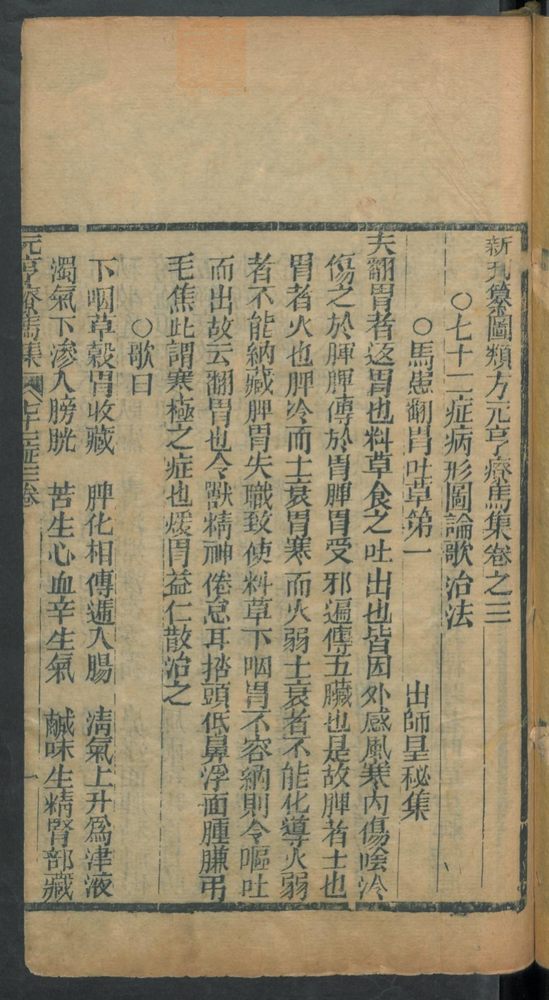 新刋纂圖類方元亨療馬集卷之三
○七十二症病形圖論歌治法
○馬患翻胃吐草第一 出師皇秘集
夫翻胃者返胃也料草食之吐出也皆因外感風寒內傷陰冷
傷之於脾脾傳於胃脾胃受邪逼傳五臟也是故脾者土也
胃者火也脾冷而土衰胃寒而火弱土衰者不能化導火弱
者不能納藏脾胃失職致使料草下咽胃不容納則令嘔吐
而出故云翻胃也令獸精神倦怠耳搭頭低鼻浮面腫膁弔
毛焦此謂寒極之症也煖胃益仁散治之
○歌曰
下咽草穀胃收藏 脾化相傳遞入腸 淸氣上升爲津液
濁氣下滲入膀胱 苦生心血辛生氣 鹹味生精腎部藏
元亨療馬集 七十二症三卷 一